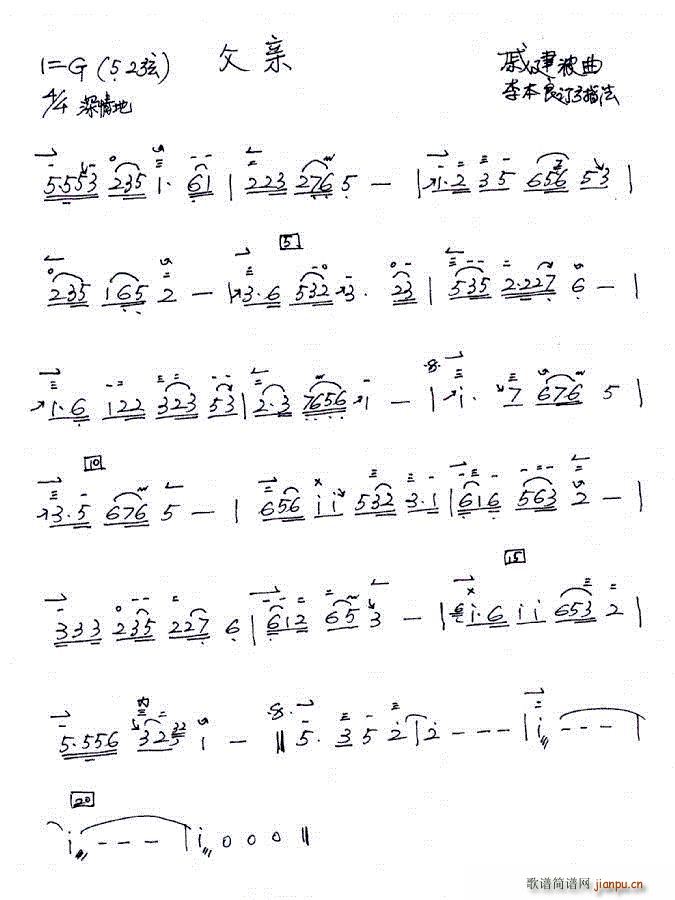 父亲
1=G (5̣ 2弦) 戚建波曲
4/4 深情地 李本良订指法
5.553 235 1. 61 | 223 276 5 — | 1.2 35 656 53 |
5
235 165 2 — | 3.6 532 3. 23 | 535 2.227 6 — |
1.6 122 323 53 | 2.3 7656 1 — | 8 i. 7 676 5 |
10
3.5 676 5 — | 656 ii 532 3.1 | 616 563 2 — |
15
333 235 227 6 | 612 65 3 — | i.6 ii 653 2 |
5.556 325 i — || 8 5. 3 5 2 | 2 - - - | i - - - |
20
i - - - | i 0 0 0 ||
歌谱简谱网 jianpu.cn